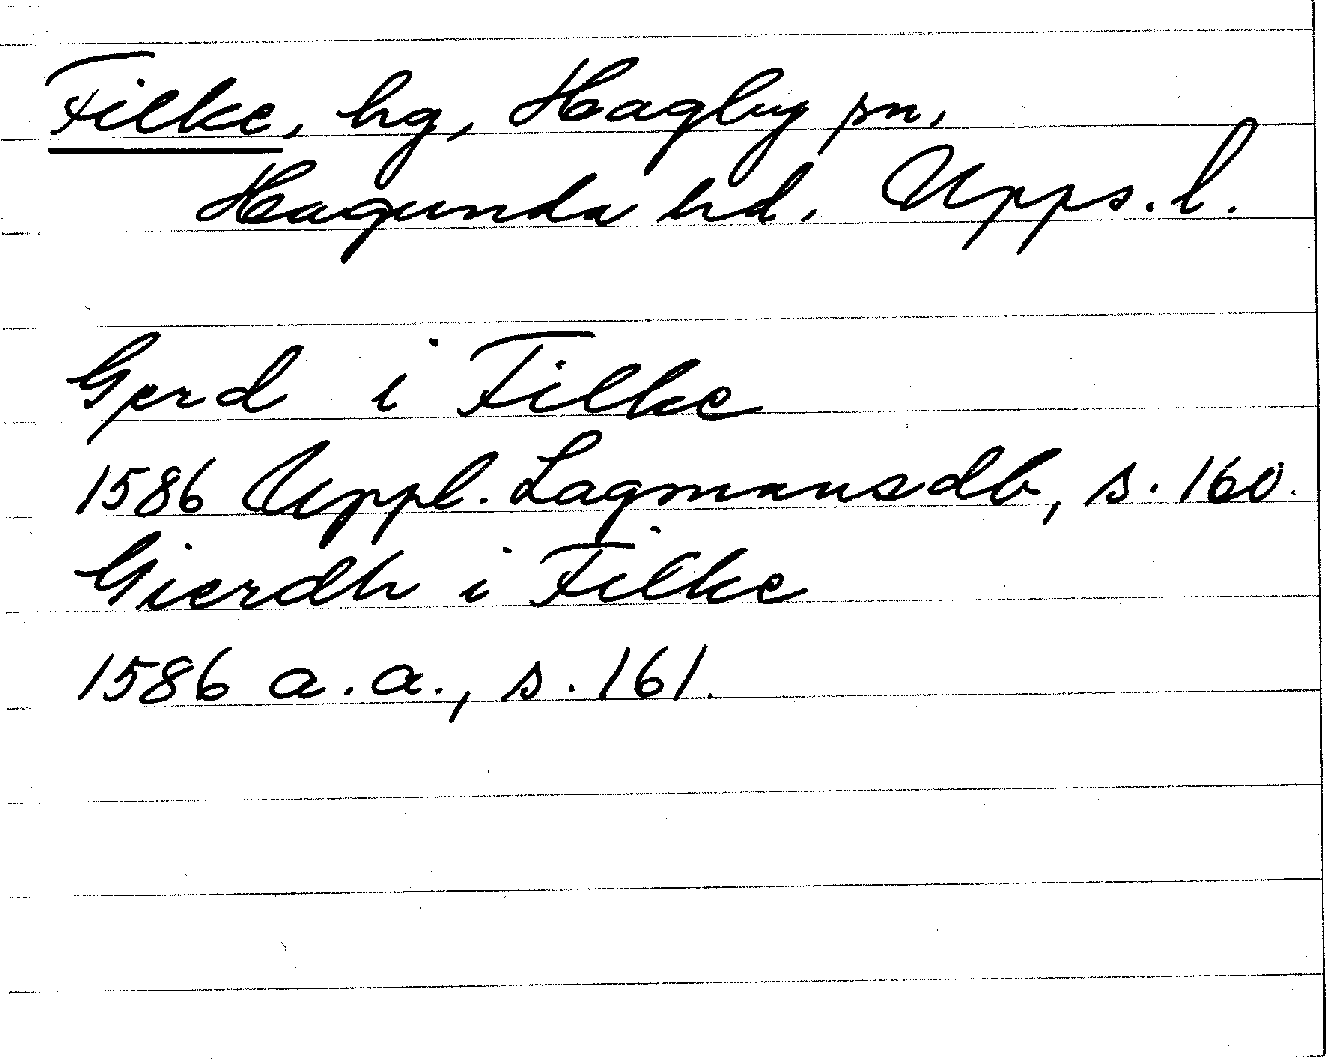 Filke, hg, Hagby sn,
Hagunda hd. Upps. l.
Gerd i Filke
1586 Uppl. Lagmansdb, s. 160.
Gierdh i Filke
1586 a. a., s. 161.